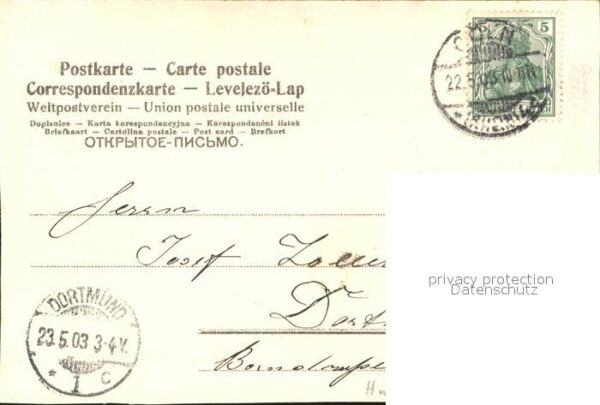 Postkarte — Carte postale
Correspondenzkarte — Levelezö-Lap
Weltpostverein — Union postale universelle
Dopisnice — Karta korespondencyjna — Korespondenční lístek
Briefkaart — Cartolina postale — Post card — Brefkort
ОТКРЫТОЕ-ПИСЬМО.
5
CÖLN
22.5.03
Herrn
Josef
privacy protection
Datenschutz
Dort
DORTMUND
23.5.03 3-4V.
* 1 c